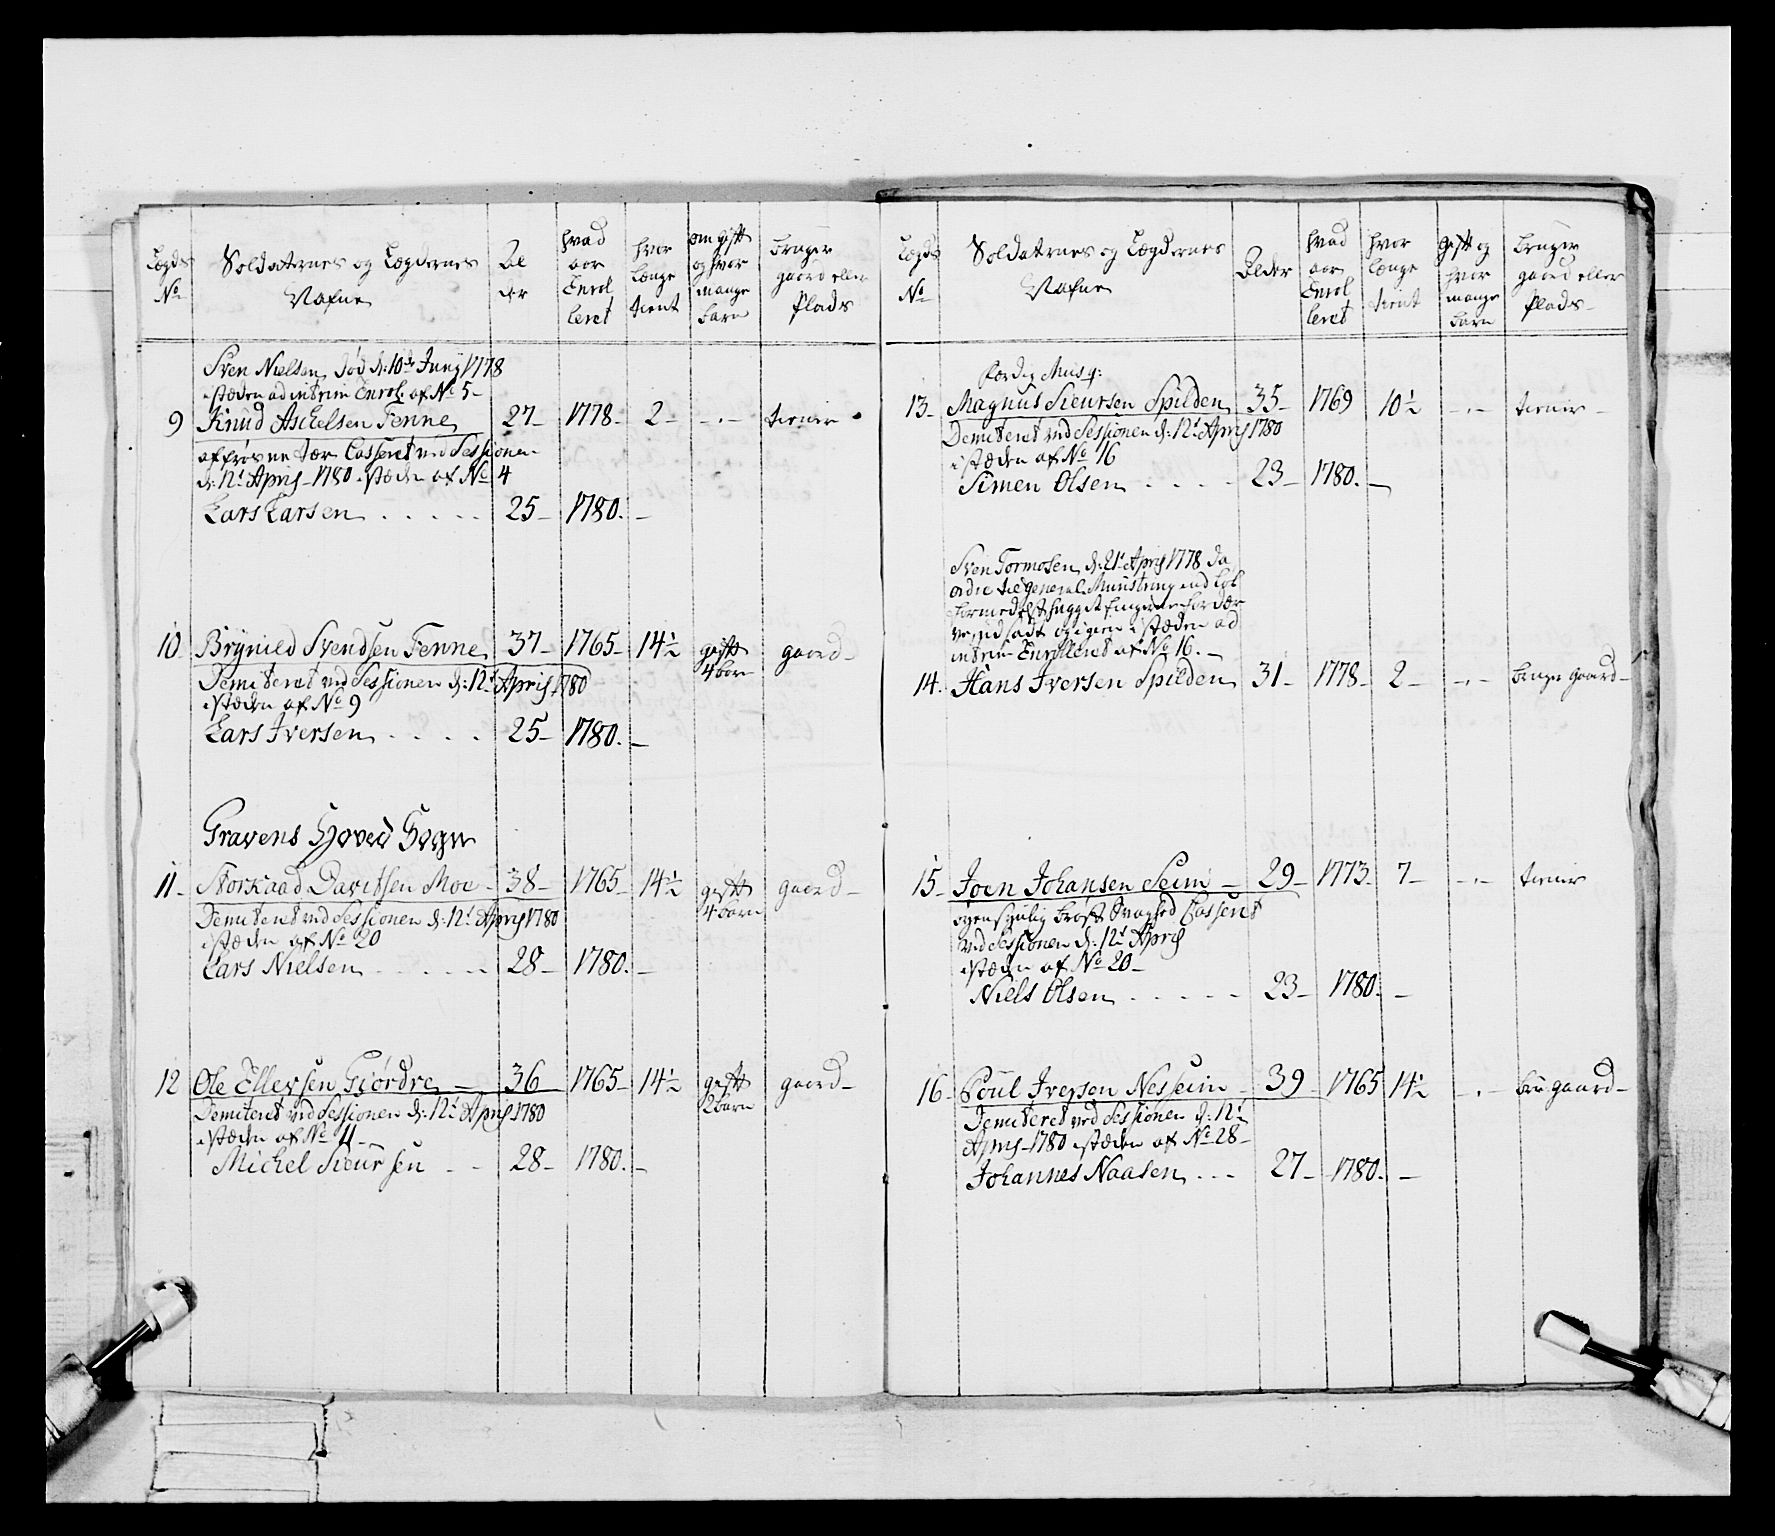 Lægds No
Soldaternes og Lægdernes Nafne
hvad aar Enrolleret
hvor længe tient
om gift og hvor mange barn
bruger gaard eller Plads
Sven Nielsen, død d: 10de Junÿ 1778
istæden ad interim Enrol. af No 5
9 Knud Aschelsen Tenne 27 1778 2 tiener
Casseret ved Sessionen
d: 12t April 1780 istæden af No 4
Lars Larsen 25 1780.
10 Brÿnild Svendsen Tenne 37 1765 14½ gift 4 børn gaard
Demiteret ved Sessionen d: 12t April 1780
istæden af No 9
Lars Iversen 25 1780.
Gravens Hoved Sogn
11 Storkaad Davidsen Moe 38 1765 14½ gift 4 barn gaard
Demiteret ved Sessionen d: 12t April 1780
istæden af No 20
Lars Nielsen 28 1780.
12 Ole Ellevsen Giørdre 36 1765 14½ gift 2 barn gaard
Demiteret ved Sessionen d: 12t April 1780
istæden af No 11
Michel Siursen 28 1780.
Lægds No
Soldaternes og Lægdernes Nafne
Alder
hvad aar Enrolleret
hvor længe tient
gift og hvor mange barn
bruger gaard eller Plads
Færdig Musq:
13 Magnus Siursen Spilden 35 1769 10½ tiener
Demiteret ved Sessionen d: 12t April 1780
istæden af No 16
Simen Olsen 23 1780.
Sven Tormosen, d: 21t April 1778 da
ordre til General Munstring
og igien istæden ad
interim Enrolleret af No 16.
14. Hans Iversen Spilden 31 1778 2 bruger gaard
15 Joen Johansen Seim 29 1773 7 tiener
brøst Svaghed Casseret
ved Sessionen d: 12t April
istæden af No 20
Niels Olsen 23 1780.
16 Poul Iversen Nesseim 39 1765 14½ bru gaard
Demiteret ved Sessionen d: 12t
April 1780 istæden af No 28
Johannes Naasen 27 1780.